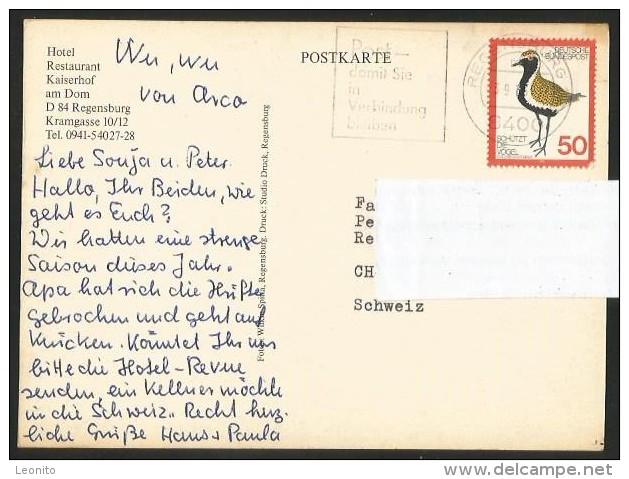 Hotel
Restaurant
Kaiserhof
am Dom
D 84 Regensburg
Kramgasse 10/12
Tel. 0941-54027-28
Wu, wu
von Arco
POSTKARTE
Post –
damit Sie
in
Verbindung
bleiben
8400
DEUTSCHE
BUNDESPOST
SCHÜTZT
DIE
VÖGEL
50
Liebe Sonja u. Peter.
Hallo, Ihr Beiden, wie
geht es Euch?
Wir hatten eine strenge
Saison dieses Jahr.
Apa hat sich die Hüfte
gebrochen und geht auf
Krücken. Könntet Ihr uns
bitte die Hotel-Revue
senden, ein Kellner möchte
in die Schweiz. Recht herz-
liche Grüße Hans + Paula
Foto: Wilkin Spitta, Regensburg. Druck: Studio Druck, Regensburg
Fa
Pe
Re
CH
Schweiz
Leonito
www.delcampe.net